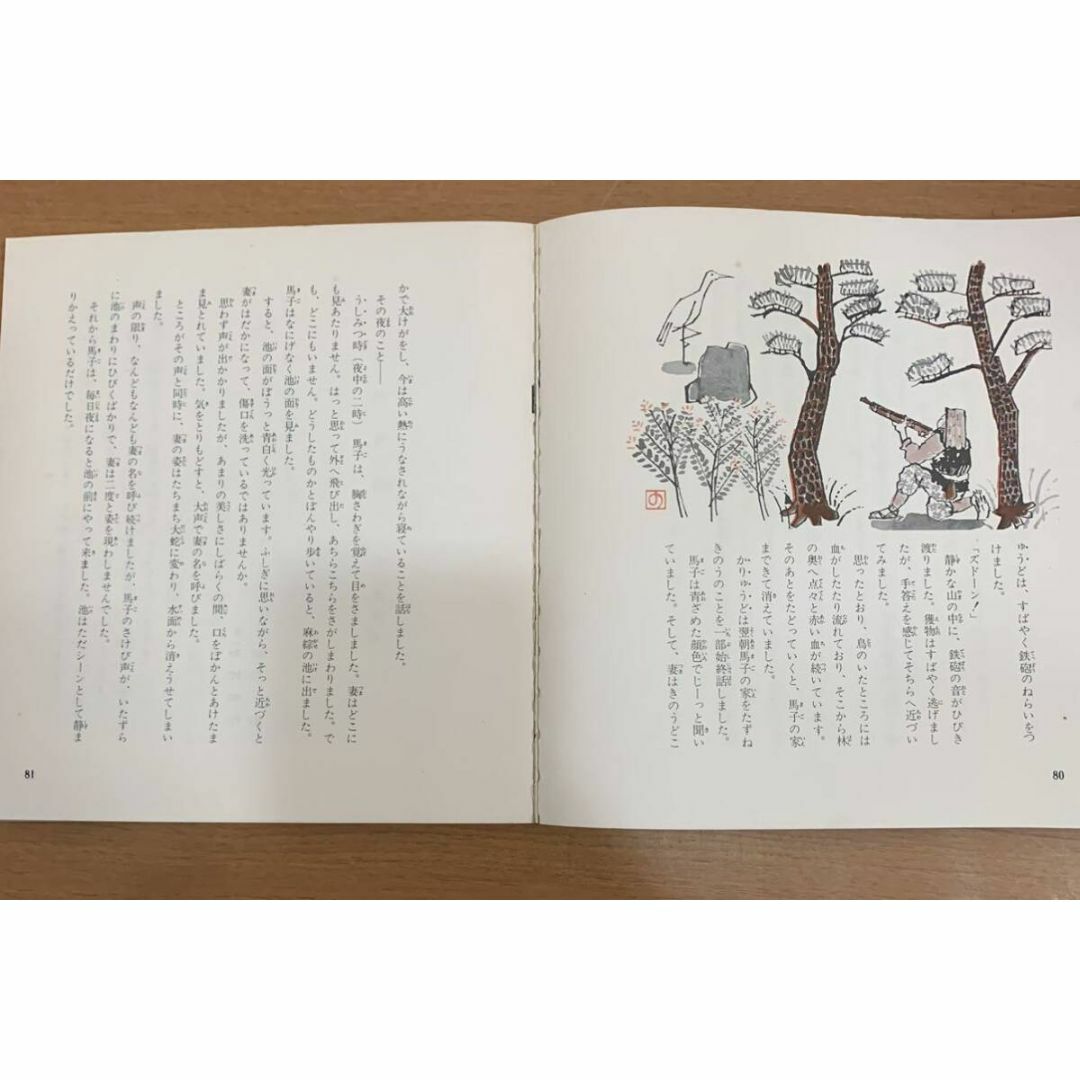 ゅうどは、すばやく鉄砲のねらいをつ
けました。
「ズドーン!」
静かな山の中に、鉄砲の音がひびき
渡りました。獲物はすばやく逃げまし
たが、手答えを感じてそちらへ近づい
てみました。
思ったとおり、鳥のいたところには
血がしたたり流れており、そこから林
の奥へ点々と赤い血が続いています。
そのあとをたどっていくと、馬子の家
まできて消えていました。
かりゅうどは翌朝馬子の家をたずね
きのうのことを一部始終話しました。
馬子は青ざめた顔色でじーっと聞い
ていました。そして、妻はきのうどこ
80
かで大けがをし、今は高い熱にうなされながら寝ていることを話しました。
その夜のこと――
うしみつ時(夜中の二時)馬子は、胸さわぎを覚えて目をさましました。妻はどこに
も見あたりません。はっと思って外へ飛び出し、あちらこちらをさがしまわりました。で
も、どこにもいません。どうしたものかとぼんやり歩いていると、麻綜の池に出ました。
馬子はなにげなく池の面を見ました。
すると、池の面がぼうっと青白く光っています。ふしぎに思いながら、そっと近づくと
妻がはだかになって、傷口を洗っているではありませんか。
思わず声が出かかりましたが、あまりの美しさにしばらくの間、口をぽかんとあけたま
ま見とれていました。気をとりもどすと、大声で妻の名を呼びました。
ところがその声と同時に、妻の姿はたちまち大蛇に変わり、水面から消えうせてしまい
ました。
声の限り、なんどもなんども妻の名を呼び続けましたが、馬子のさけび声が、いたずら
に池のまわりにひびくばかりで、妻は二度と姿を現わしませんでした。
それから馬子は、毎日夜になると池の前にやって来ました。池はただシーンとして静ま
りかえっているだけでした。
81